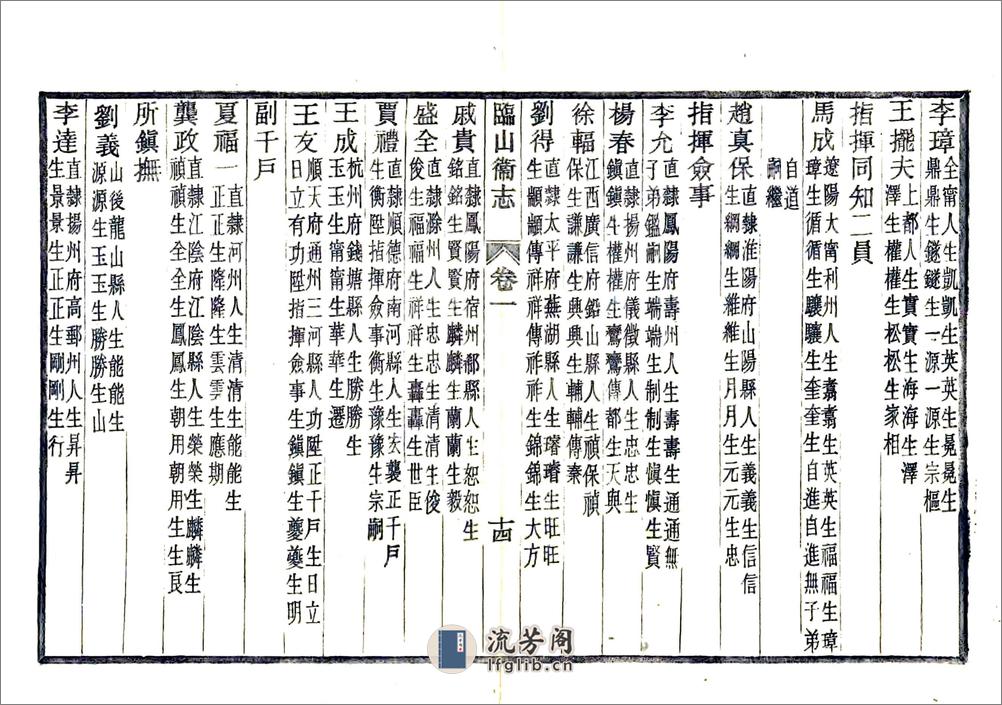 李璋全甯人生凱凱生英英生晃晃生
鼎鼎生鐩鐩生一源一源生宗樞
王擺夫上都人生寳寳生海海生澤
澤生權權生松松生家相
指揮同知二員
馬成遼陽大甯利州人生翥翥生英英生福福生璋
璋生循循生驤驤生奎奎生自進自進無子弟
自道
嗣繼
趙真保直隸淮陽府山陽縣人生義義生信信
生綱綱生維維生月月生元元生忠
指揮僉事
李允直隸鳳陽府壽州人生壽壽生通通無
子弟鑑嗣生端端生制制生愼愼生賢
楊春直隸揚州府儀徵縣人生忠忠生
鎭鎭生權權生鸞鸞傳都生天與
徐輻江西廣信府鉛山縣人生禎保禎
保生謙謙生興興生輔輔傳秦
劉得直隸太平府蕪湖縣人生璿璿生旺旺
生顓顓傳祥祥傳祚祚生錦錦生大方
臨山衞志 卷一 十四
戚貴直隸鳳陽府宿州鄀縣人生恕恕生
銘銘生賢賢生麟麟生蘭蘭生毅
盛全直隸滁州人生忠忠生清清生俊
俊生福福生祥祥生轟轟生世臣
賈禮直隸順德府南河縣人生宏襲正千戶
生衡陞指揮僉事衡生豫豫生宗嗣
王成杭州府錢塘縣人生勝勝生
玉玉生甯甯生華華生遷
王友順天府通州三河縣人功陞正千戶生日立
日立有功陞指揮僉事生鎭鎭生夔夔生明
副千戶
夏福一直隸河州人生清清生能能生
正正生隆隆生雲雲生應期
龔政直隸江陰府江陰縣人生榮榮生麟麟生
禎禎生全全生鳳鳳生朝用朝用生生良
所鎭撫
劉義山後龍山縣人生能能生
源源生玉玉生勝勝生山
李達直隸揚州府高郵州人生昇昇
生景景生正正生剛剛生行
流芳阁
lfglib.cn